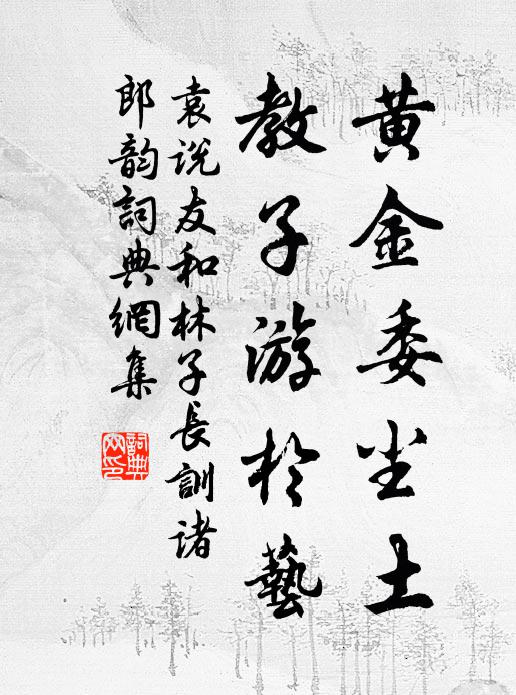 黄金委尘土
教子游於藝
袁说友和林子長訓诸
郎韵詞典網集
詞典网印